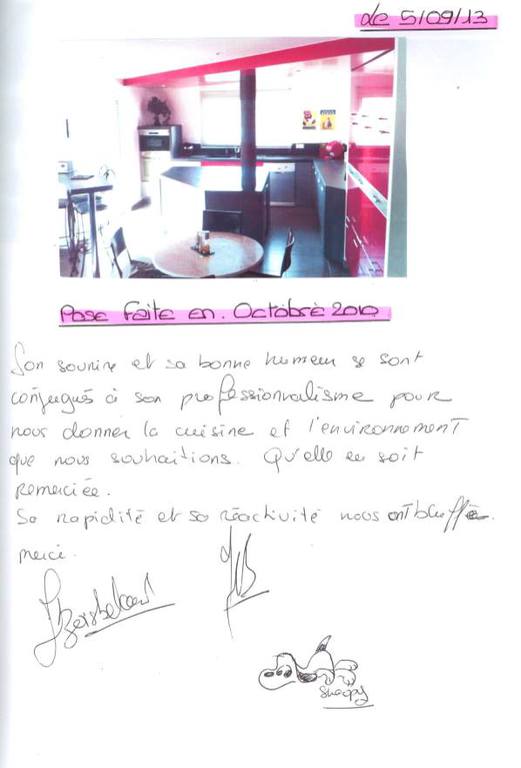 de 5/09/13
Pose Faite en. Octobre 2010
Son sourire et sa bonne humeur se sont
conjugués à son professionnalisme pour
nous donner la cuisine et l'environnement
que nous souhaitions. Qu'elle en soit
remerciée.
Sa rapidité et sa réactivité nous ont bluffé.
merci.